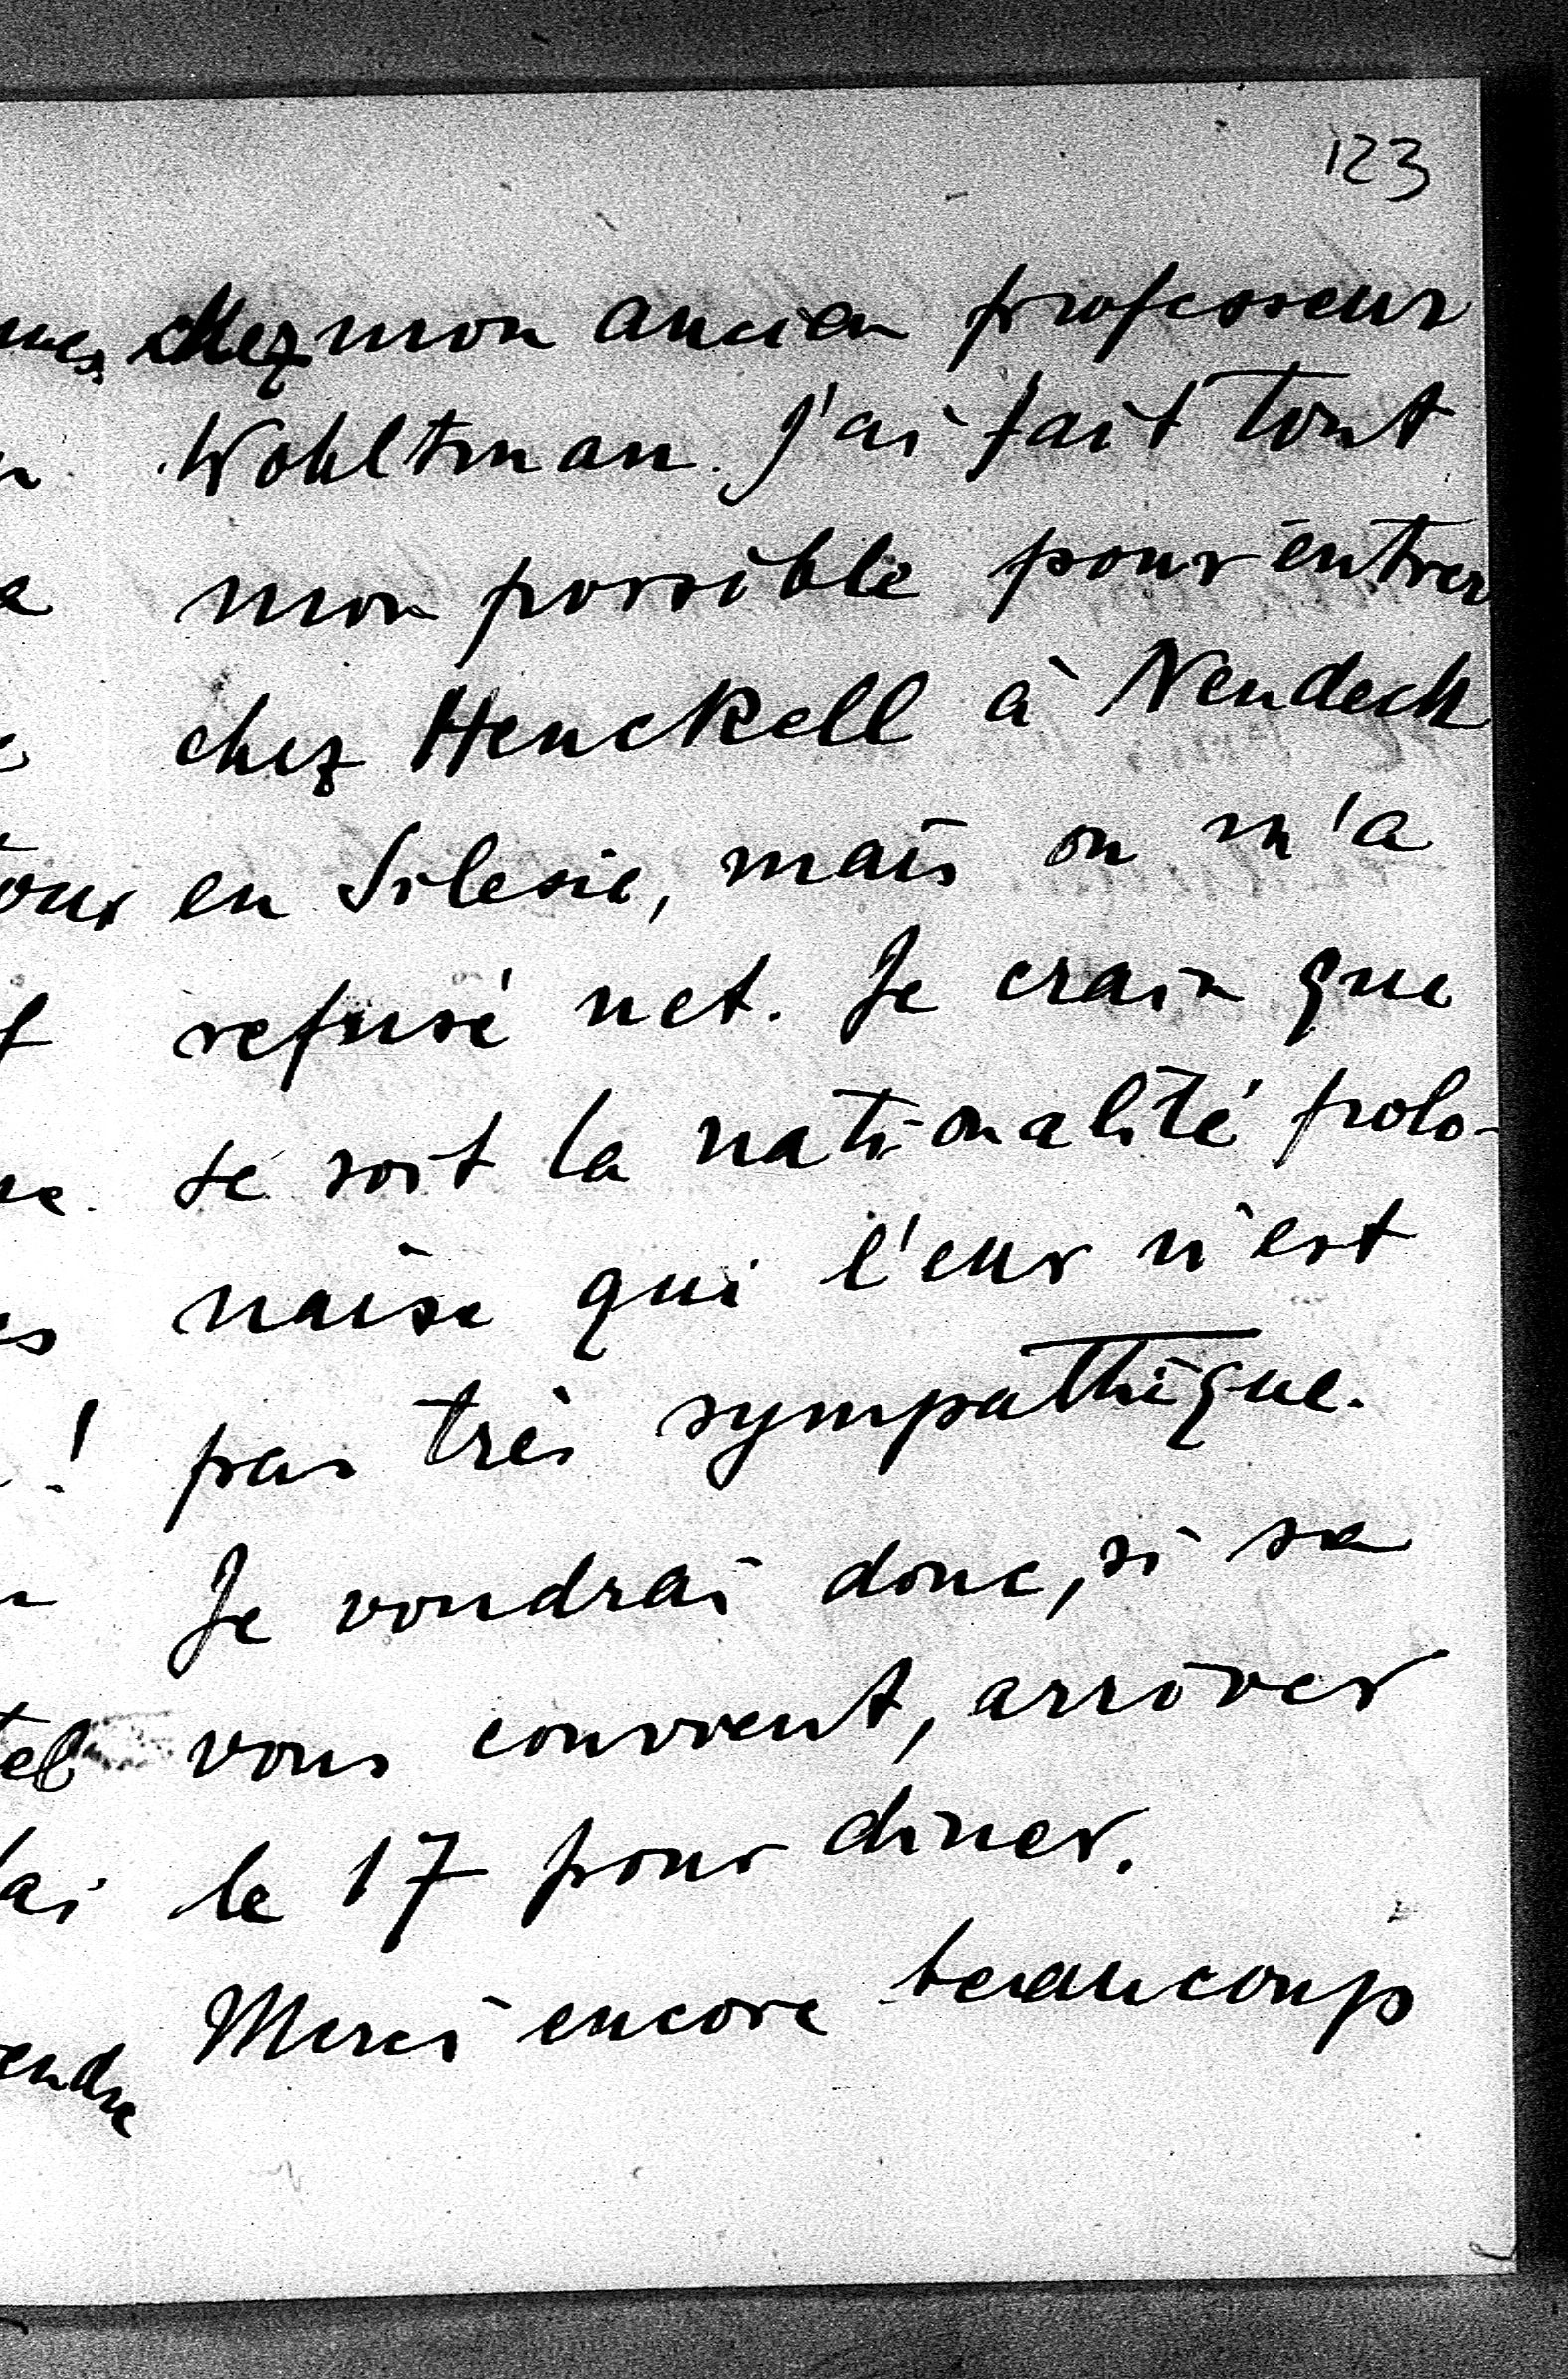 123
chez mon ancien professeur
Wohltman. J'ai fait tout
mon possible pour entrer
chez Henckell à Neudeck
en Silesie, mais on m'a
refusé net. Je crain que
se soit la nationalité polo-
naise qui l'eur n'est
pas très sympathique.
Je voudrai donc, si sa
vous convient, arriver
le 17 pour diner.
Merci encore beaucoup